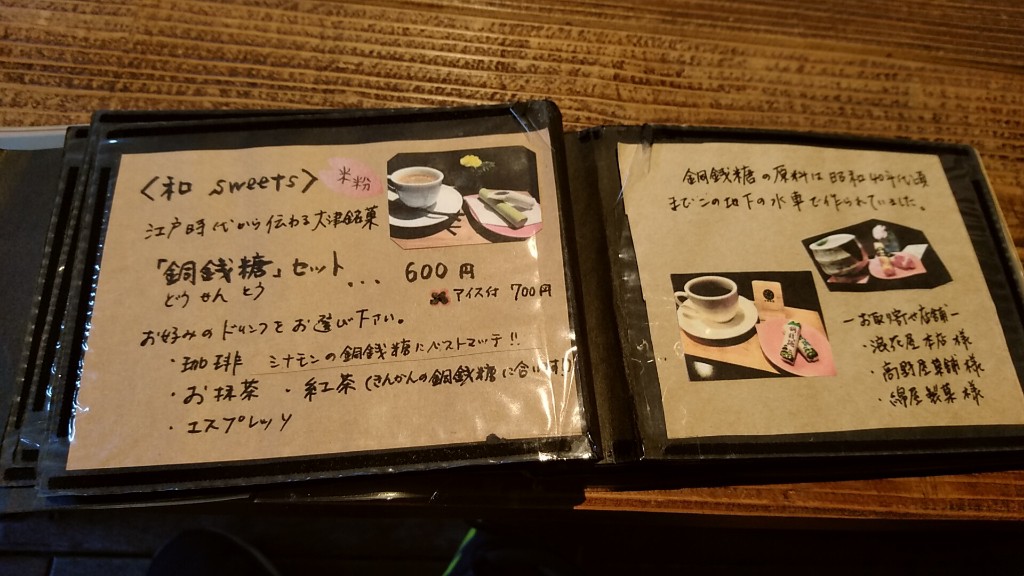 〈和 sweets〉 米粉
江戸時代から伝わる大津銘菓
「銅銭糖」セット ... 600円
どう せん とう
アイス付 700円
お好みのドリンクをお選び下さい。
・珈琲 シナモンの銅銭糖にベストマッチ!!
・お抹茶 ・紅茶(きんかんの銅銭糖に合います!)
・エスプレッソ
銅銭糖の原料は昭和40年代頃
までこの地下の水車で作られていました。
―お取寄せ店舗―
・浪花屋本店 様
・高野屋菓舗 様
・綿屋製菓 様